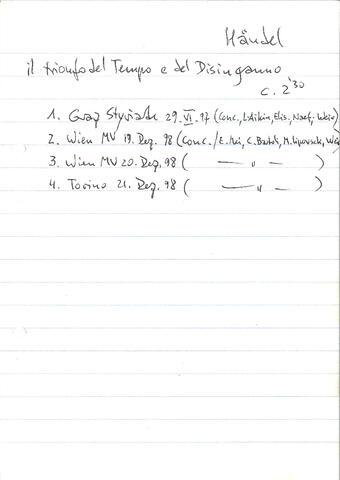 Händel
il trionfo del Tempo e del Disinganno
c. 2'30
1. Graz Styriarte 29. VI. 97 (Conc., Elis, Naef,
2. Wien MV 19. Dez. 98 (Conc./E. Mei, C. Bartoli, M. Lipovsek,
3. Wien MV 20. Dez. 98 ( — " — )
4. Torino 21. Dez. 98 ( — " — )